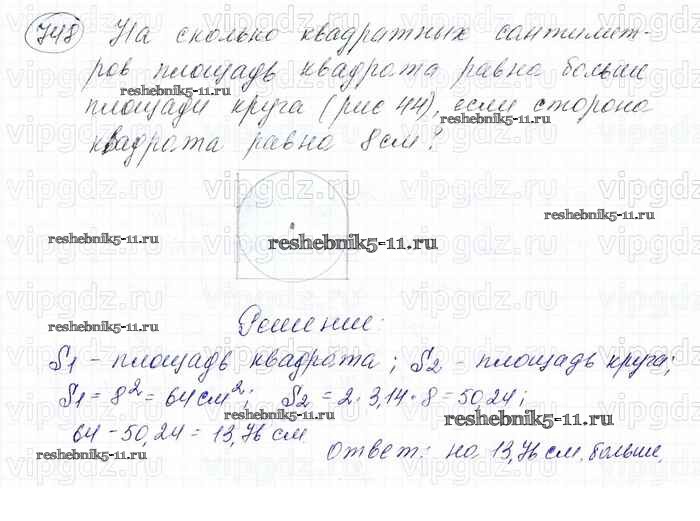 748 На сколько квадратных сантимет-
ров площадь квадрата равна больше
площади круга (рис 44), если сторона
квадрата равна 8 см?
Решение:
S1 - площадь квадрата; S2 - площадь круга;
S1 = 8² = 64 см²; S2 = 2·3,14·8 = 50,24;
64 - 50,24 = 13,76 см
Ответ: на 13,76 см. больше.
reshebnik5-11.ru
reshebnik5-11.ru
reshebnik5-11.ru
reshebnik5-11.ru
reshebnik5-11.ru
reshebnik5-11.ru
reshebnik5-11.ru
reshebnik5-11.ru
reshebnik5-11.ru
vipgdz.ru vipgdz.ru vipgdz.ru vipgdz.ru